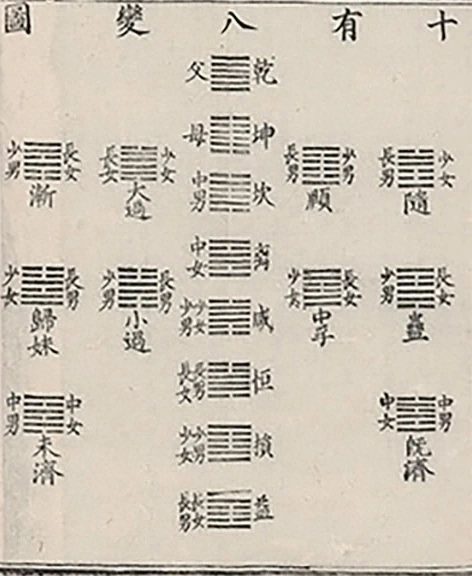 十有八變圖
少女 長男
隨
長女 少男
蠱
中男 中女
旣濟
少男 長男
頤
長女 少女
中孚
乾 父
坤 母
坎 中男
離 中女
咸 少女 少男
恒 長男 長女
損 少男 少女
益 長女 長男
少女 長女
大過
長男 少男
小過
長女 少男
漸
長男 少女
歸妹
中女 中男
未濟